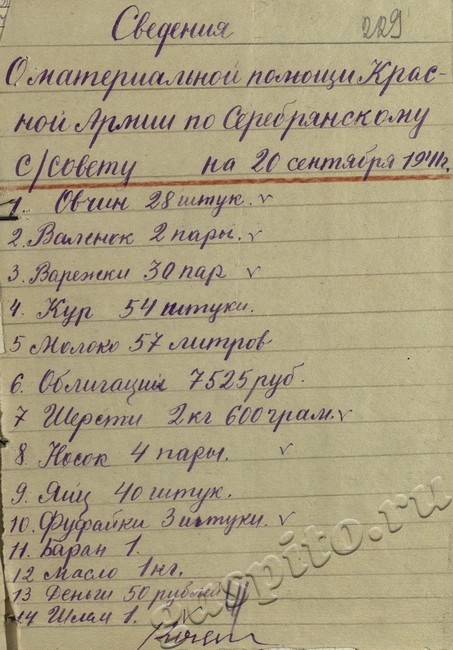 Сведения 229
О материалной помощи Крас-
ной Армии по Серебрянскому
с/совету на 20 сентября 1941г.
1. Овчин 28 штук. ✓
2. Валенок 2 пары. ✓
3. Варежки 30 пар ✓
4. Кур 54 штуки.
5 Молоко 57 литров
6. Облигации 7525 руб.
7 Шерсти 2 кг 600 грам. ✓
8. Носок 4 пары. ✓
9. Яиц 40 штук.
10. Фуфайки 3 штуки. ✓
11. Баран 1.
12 Масло 1 кг.
13 Деньги 50 рублей
14 Шлем 1.
gaspito.ru